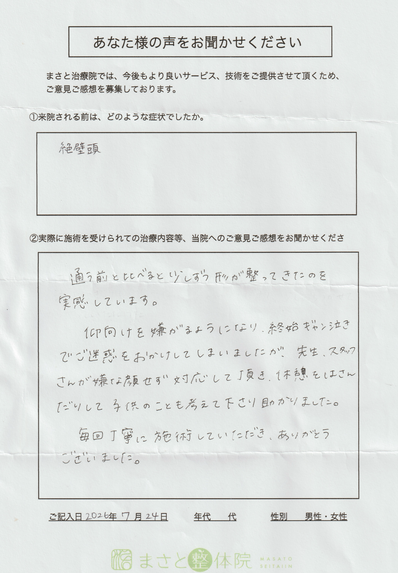 あなた様の声をお聞かせください
まさと治療院では、今後もより良いサービス、技術をご提供させて頂くため、
ご意見ご感想を募集しております。
①来院される前は、どのような症状でしたか。
絶壁頭
②実際に施術を受けられての治療内容等、当院へのご意見ご感想をお聞かせくださ
通う前と比べると少しずつ形が整ってきたのを
実感しています。
仰向けを嫌がるようになり、終始ギャン泣き
でご迷惑をおかけしてしまいましたが、先生、スタッフ
さんが嫌な顔せず対応して頂き、休憩をはさん
だりして子供のことも考えて下さり助かりました。
毎回丁寧に施術していただき、ありがとう
ございました。
ご記入日2026年7月24日 年代 代 性別 男性・女性
まさと整体院 MASATO SEITAIIN